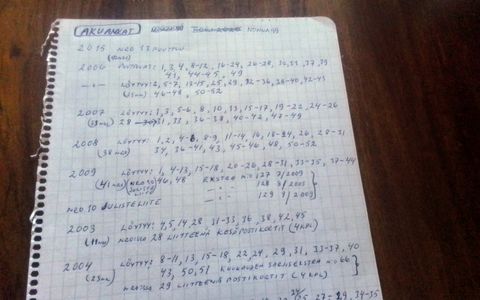 AKUANKAT NONUA 49
2015 NEO 13 PUUTUU
2006 PUUTUU: 1, 3, 4, 8-12, 16-24, 26-28, 30, 37, 39
41, 44-45, 49
-"- LÖYTYY: 2, 5-7, 13-15, 25, 29, 32-36, 38-40, 42-43
46-48, 50-52
2007 LÖYTYY: 1, 3, 5-6, 8, 10, 13, 15-17, 19-22, 24-26
28 31, 33, 36-38, 40-42, 48-49
2008 LÖYTYY: 1, 2, 4-6, 8-9, 11-14, 16, 18-24, 26, 28-31
(38 KPL) 34, 36-41, 43, 45-46, 48, 50-52
2009 LÖYTYY: 1, 4-13, 15-18, 20-26, 28-31, 33-35, 37-44
(41 KPL) 46, 48 EKSTRA N:O 127 7/2009
-"- 128 8/2009
-"- 129 9/2009
NEO 10 JULISTELIITE
2003 LÖYTYY: 4, 5, 14, 28 31-33, 36, 38, 42, 45
(11 KPL) 28 LIITTEENÄ KESÄPOSTIKORTIT (4 KPL)
2004 LÖYTYY: 8-11, 13, 15-18, 22, 24, 29, 31, 33-37, 40
(23 KPL) 43, 50, 51 N:O 66
29 LIITTEENÄ POSTIKORTIT (4 KPL)
27-29, 34-35